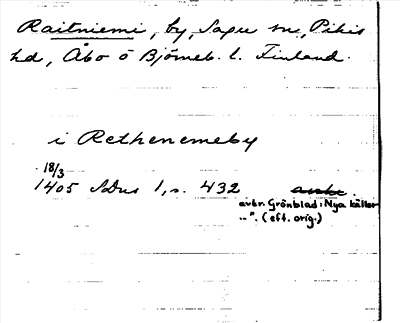 Raitniemi, by, Sagu sn, Pikis
hd, Åbo o Björneb. l. Finland.
i Rethenemeby
18/3
1405 SDns 1, s. 432
avtr. Grönblad: Nya källor
..". (eft. orig.)